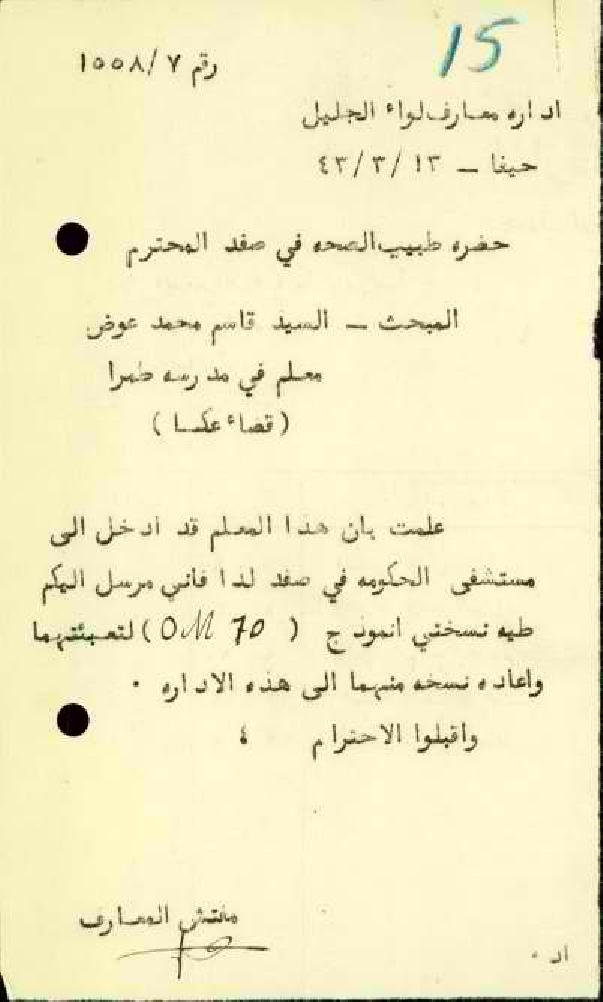 15
رقم ١٥٥٨/٧
اداره معارف لواء الجليل
حيفا – ٤٣/٣/١٣
حضره طبيب الصحه في صفد المحترم
المبحث – السيد قاسم محمد عوض
معلم في مدرسه طمرا
(قضاء عكا)
علمت بان هذا المعلم قد ادخل الى
مستشفى الحكومه في صفد لذا فاني مرسل اليكم
طيه نسختي انموذج (OM 70) لتعبئتهما
واعاده نسخه منهما الى هذه الاداره ٠
واقبلوا الاحترام ٤
مفتش المعارف